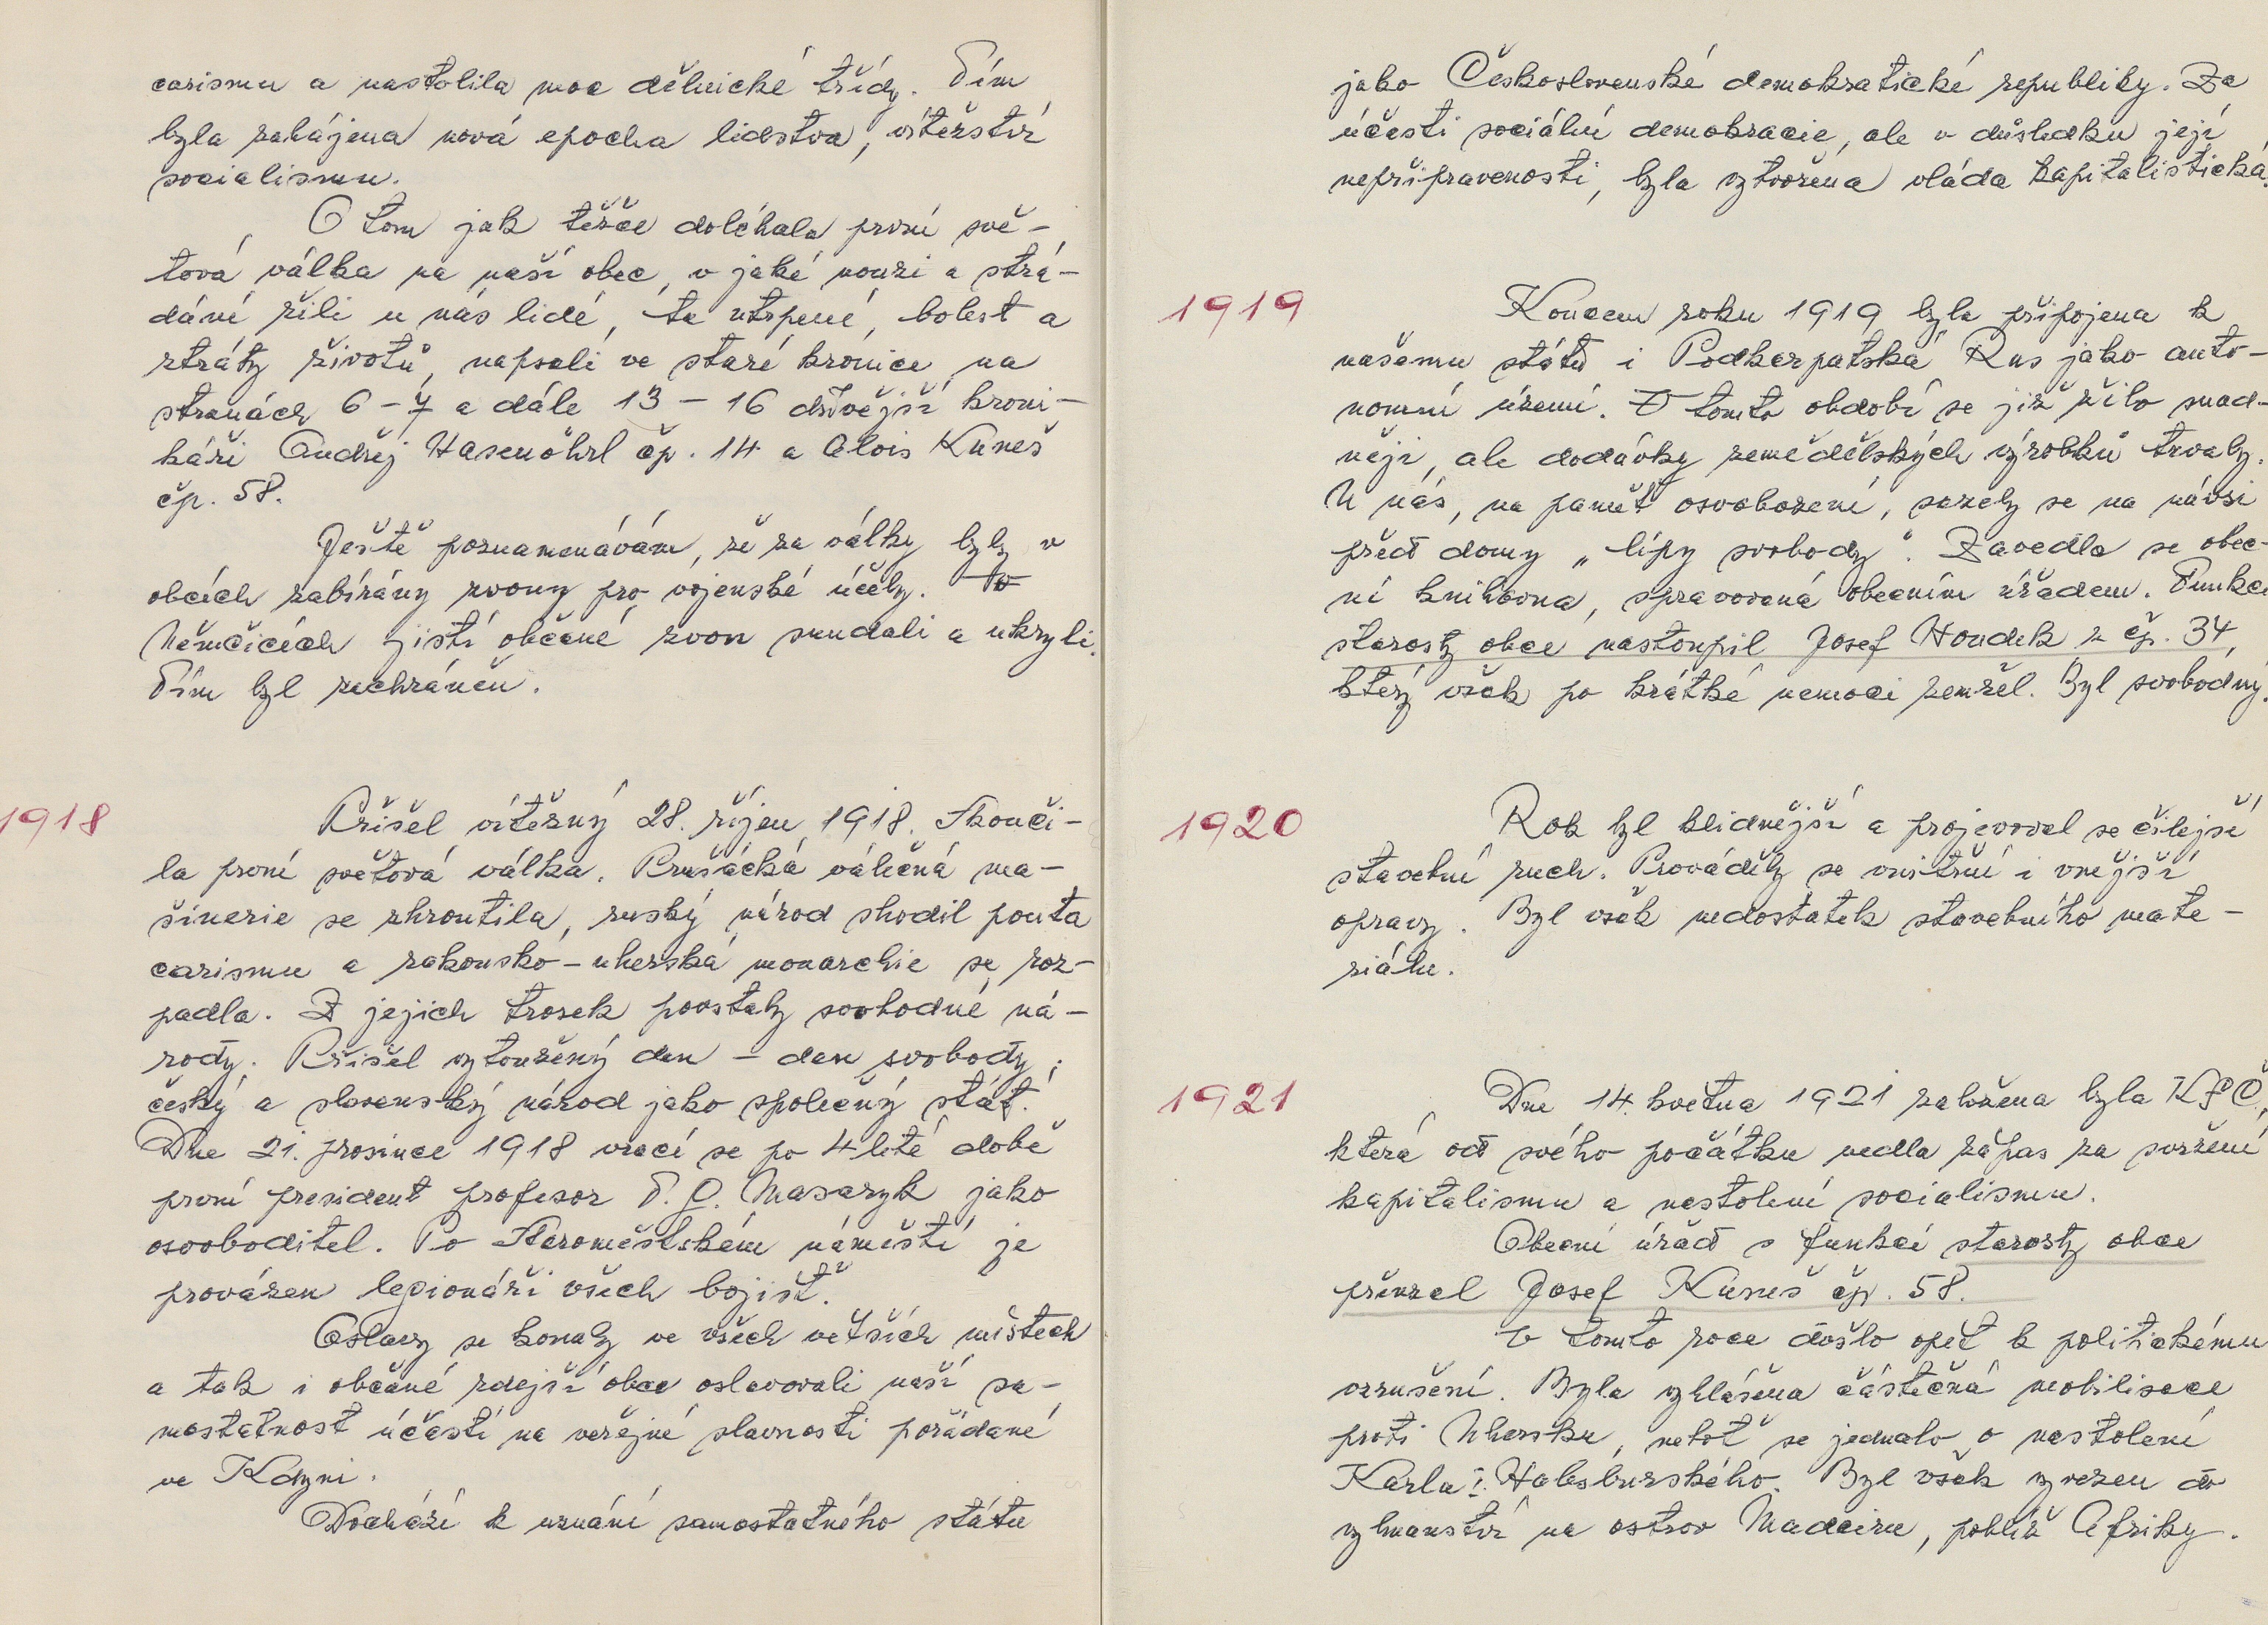 carismu a nastolila moc dělnické třídy. Tím
byla zahájena nová epocha lidstva, vítěžství
socialismu.
O tom jak těžce doléhala první svě-
tová válka na naší obec, v jaké nouzi a strá-
dání žili u nás lidé, ta utrpení, bolest a
ztráty životů, napsali ve staré kronice na
stranách 6-7 a dále 13-16 dřívější kroni-
káři Ondřej Hasenöhrl čp. 14 a Alois Kuneš
čp. 58.
Ještě poznamenávám, že za války byly v
obcích zabírány zvony pro vojenské účely. To
Němčicích jistí občané zvon sundali a ukryli.
Tím byl zachráněn.
1918
Přišel vítězný 28. říjen 1918. Skonči-
la první světová válka. Prušácká válečná ma-
šinerie se zhroutila, ruský národ shodil pouta
carismu a rakousko-uherská monarchie se roz-
padla. Z jejich trosek povstaly svobodné ná-
rody. Přišel vytoužený den - den svobody,
český a slovenský národ jako společný stát.
Dne 21. prosince 1918 vrací se po 4 leté době
první president profesor T. G. Masaryk jako
osvoboditel. Po Staroměstském náměstí je
provázen legionáři všech bojišť.
Oslavy se konaly ve všech větších místech
a tak i občané zdejší obce oslavovali naší sa-
mostatnost účastí na veřejné slavnosti pořádané
ve Kdyni.
Dochází k uznání samostatného státu
jako Československé demokratické republiky. Za
účasti sociální demokracie, ale v důsledku její
nepřipravenosti, byla vytvořena vláda kapitalistická.
1919
Koncem roku 1919 byla připojena k
našemu státu i Podkarpatská Rus jako auto-
nomní území. V tomto období se již žilo snad-
něji, ale dodávky zemědělských výrobků trvaly.
U nás, na paměť osvobození, sazely se na návsi
před domy „lípy svobody". Zavedla se obec-
ní knihovna, spravovaná obecním úřadem. Funkci
starosty obce nastoupil Josef Houdek z čp. 34,
který však po krátké nemoci zemřel. Byl svobodný.
1920
Rok byl klidnější a projevoval se čilejší
stavební ruch. Prováděly se vnitřní i vnější
opravy. Byl však nedostatek stavebního mate-
riálu.
1921
Dne 14. května 1921 založena byla KSČ,
která od svého počátku vedla zápas za svržení
kapitalismu a nastolení socialismu.
Obecní úřad s funkcí starosty obce
převzal Josef Kuneš čp. 58.
V tomto roce došlo opět k politickému
vzrušení. Byla vyhlášena částečná mobilisace
proti Uhersku, neboť se jednalo o nastolení
Karla I. Habsburského. Byl však vyvezen do
vyhnanství na ostrov Madeiru, poblíž Afriky.